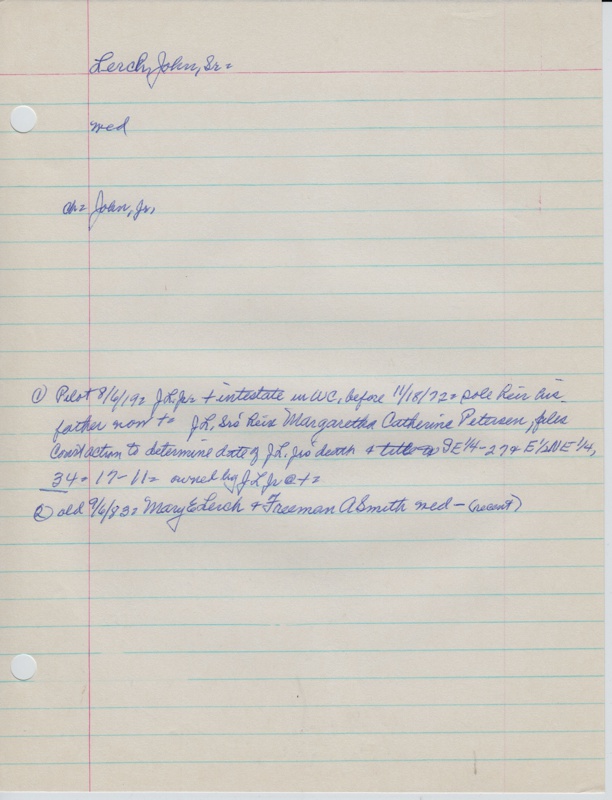 Lerch, John, Sr=
wed
ch= John, Jr,
① Pilot 8/6/19= J.L. Jr= + intestate in WC, before 11/18/72= sole heir his
father now += J.L, Sr's heir Margaretha Catherine Petersen, files
Court action to determine date of J.L. Jr's death & title to SE1/4-27+ E1/2NE1/4,
34=17-11= owned by J L Jr @ +=
② old 9/6/83= Mary E Lerch + Freeman A Smith wed - (recent)